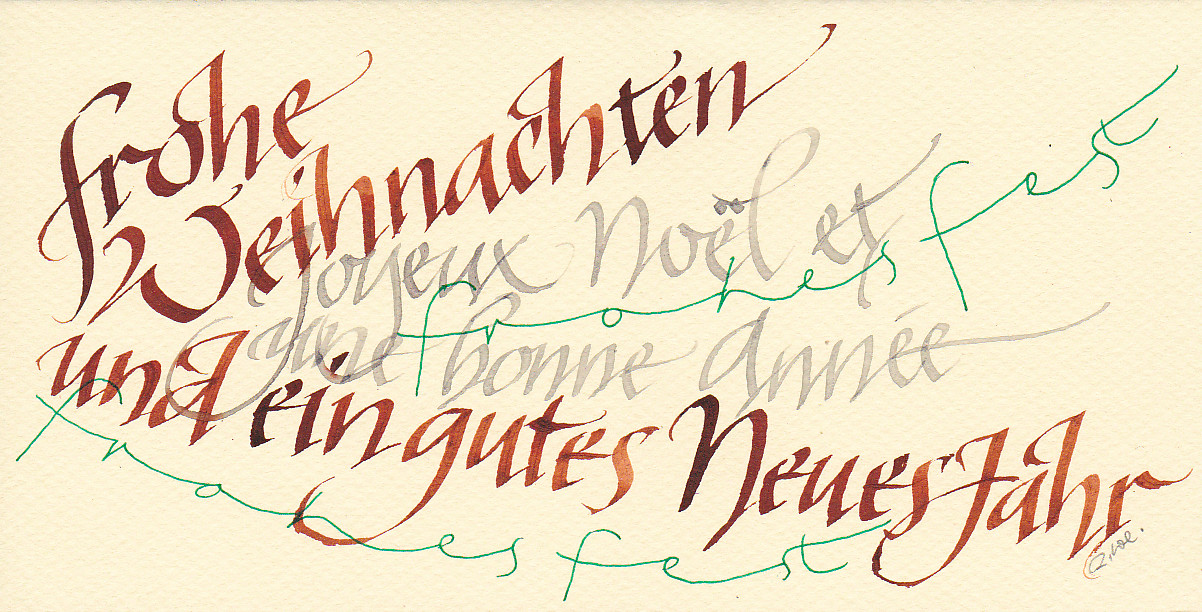 frohe
Weihnachten
Joyeux Noël et
une bonne Année
frohes fest
und ein gutes Neues Jahr
frohes fest